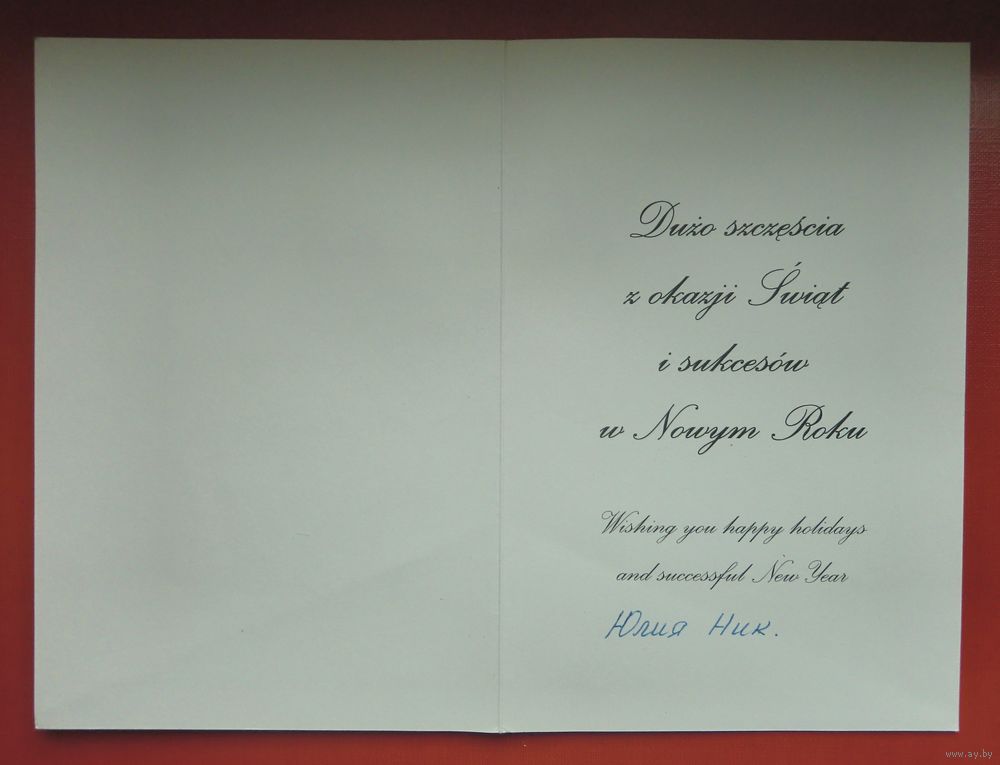 Dużo szczęścia
z okazji Świąt
i sukcesów
w Nowym Roku
Wishing you happy holidays
and successful New Year
Юлия Ник.
www.ay.by